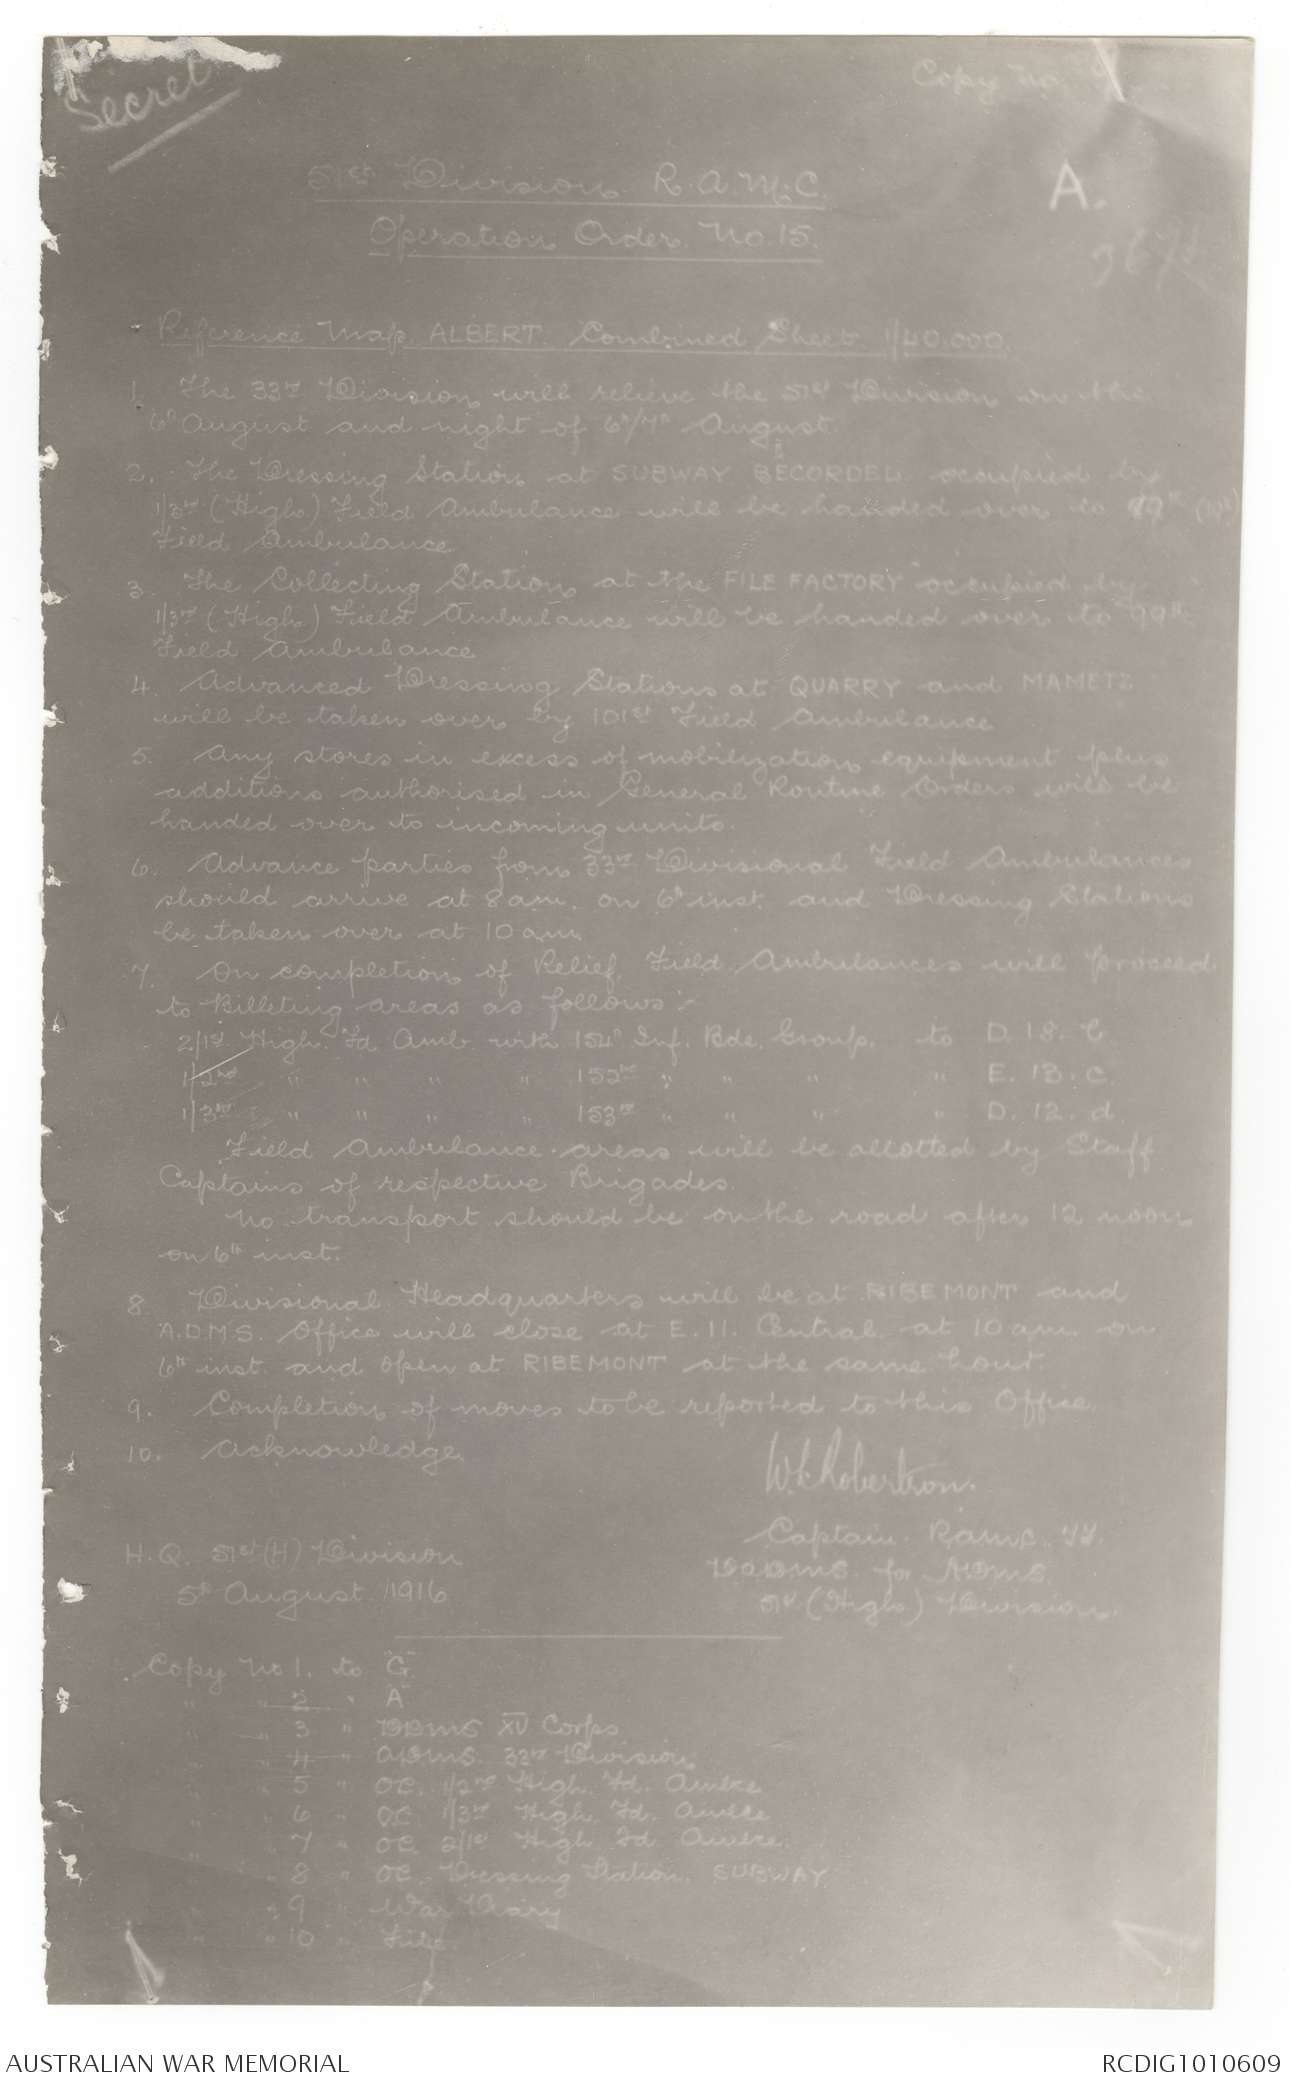 Secret
Copy No.
A.
51st Division R.A.M.C.
Operation Order No 15.
Reference Map ALBERT. Combined Sheet 1/40.000.
1. The 33rd Division will relieve the 51st Division on the
6th August and night of 6th/7th August.
2. The Dressing Station at SUBWAY BECORDEL occupied by
1/3rd (High.) Field Ambulance will be handed over to 99th
Field Ambulance
3. The Collecting Station at the FILE FACTORY occupied by
1/3rd (High.) Field Ambulance will be handed over to 99th
Field Ambulance
4. Advanced Dressing Stations at QUARRY and MAMETZ
will be taken over by 101st Field Ambulance
5. Any stores in excess of mobilization equipment plus
additions authorised in General Routine Orders will be
handed over to incoming units.
6. Advance parties from 33rd Divisional Field Ambulances
should arrive at 8 am. on 6th inst. and Dressing Stations
be taken over at 10 am.
7. On completion of Relief, Field Ambulances will proceed
to Billeting areas as follows:-
2/1st High. Fd. Amb. with 154th Inf. Bde. Group. to D. 18. C.
1/2nd " " " " 152nd " " " " E. 13. c.
1/3rd " " " " 153rd " " " " D. 12. d.
Field Ambulance areas will be allotted by Staff
Captains of respective Brigades.
No transport should be on the road after 12 noon
on 6th inst.
8. Divisional Headquarters will be at RIBEMONT and
A.D.M.S. Office will close at E. 11. Central at 10 am. on
6th inst. and open at RIBEMONT at the same hour.
9. Completion of moves to be reported to this Office.
10. Acknowledge.
W. L. Robertson.
Captain R.A.M.C. T.F.
H.Q. 51st (H) Division
D.A.D.M.S. for A.D.M.S.
5th August 1916
51st (High.) Division.
Copy No 1. to "G."
" " 2 " "A"
" " 3 " DDMS XV Corps
" " 4 " ADMS. 33rd Division
" " 5 " OC. 1/2nd High. Fd. Ambce
" " 6 " OC. 1/3rd High. Fd. Ambce
" " 7 " OC. 2/1st High Fd Ambce.
" " 8 " OC. Dressing Station. SUBWAY
" " 9 " War Diary
" " 10 " File
AUSTRALIAN WAR MEMORIAL
RCDIG1010609